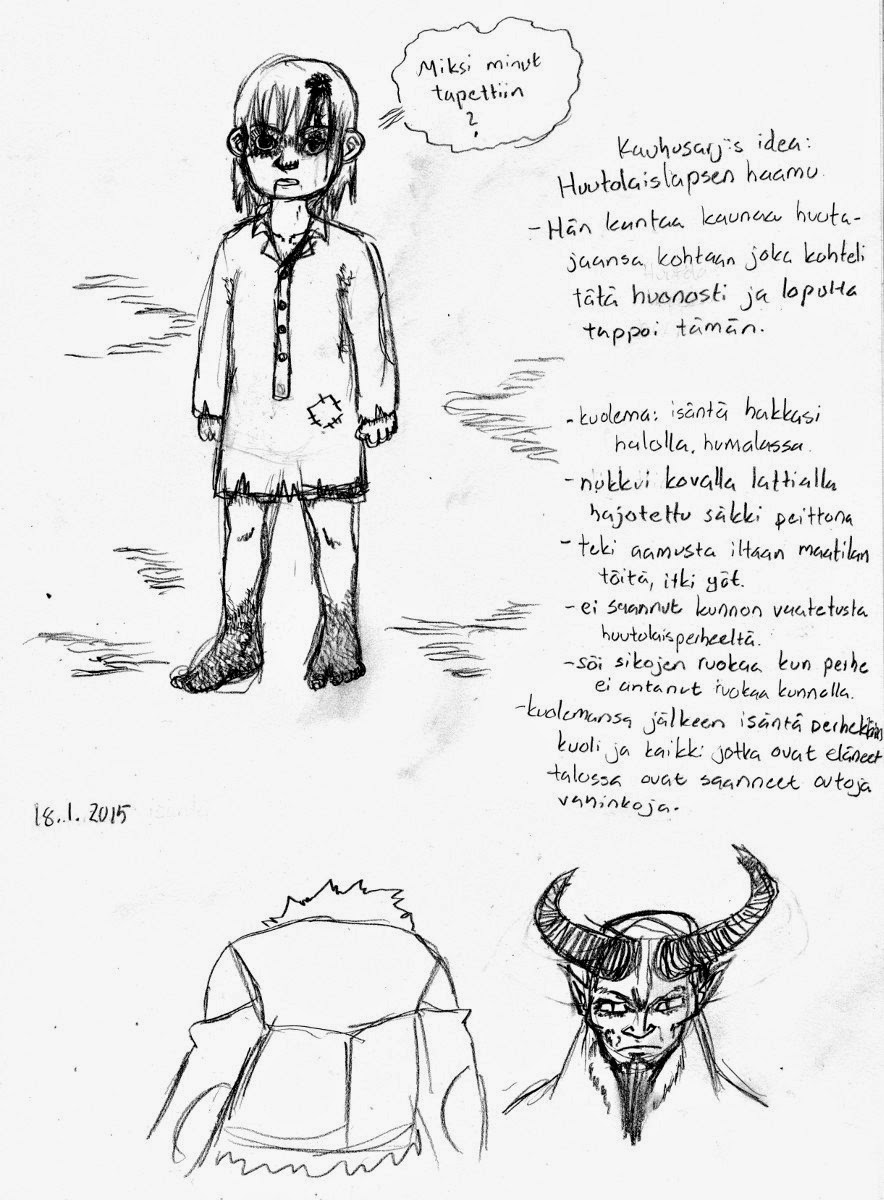 Miksi minut
tapettiin
?
Kauhusarjis idea:
Huutolaislapsen haamu.
- Hän kantaa kaunaa huuta-
jaansa kohtaan joka kohteli
tätä huonosti ja lopulta
tappoi tämän.
- kuolema: isäntä hakkasi
halolla, humalassa.
- nukkui kovalla lattialla
hajotettu säkki peittona
- teki aamusta iltaan maatilan
töitä, itki yöt.
- ei saannut kunnon vaatetusta
huutolaisperheeltä.
- söi sikojen ruokaa kun perhe
ei antanut ruokaa kunnolla.
- kuolemansa jälkeen isäntä perhekkin
kuoli ja kaikki jotka ovat eläneet
talossa ovat saanneet outoja
vahinkoja.
18.1.2015